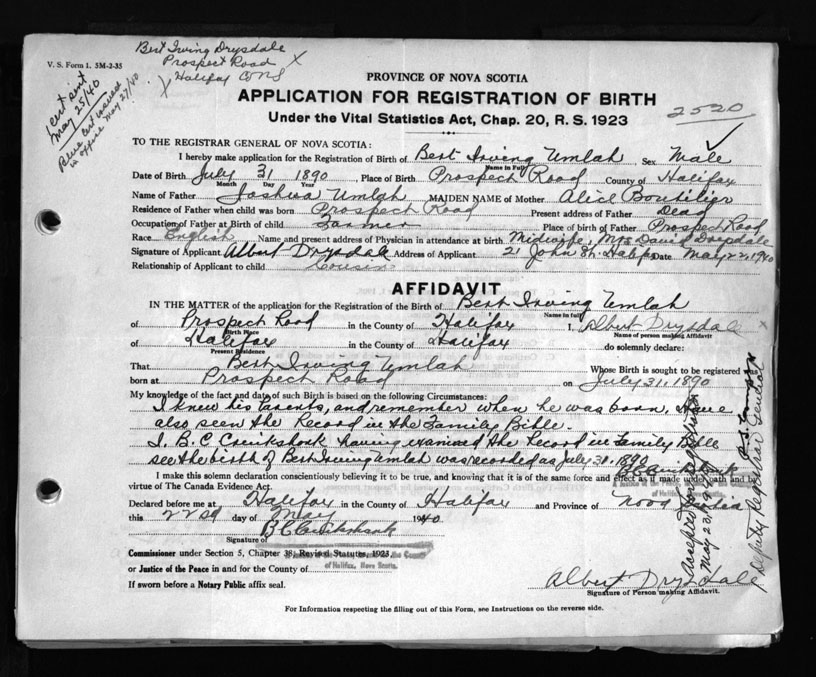 V. S. Form 1. 5M-2-35
Bert Irving Drysdale
Prospect Road X
X Halifax Co NS
1 cert sent
May 25/40
Blue cert issued
in office May 27/40
PROVINCE OF NOVA SCOTIA
APPLICATION FOR REGISTRATION OF BIRTH
Under the Vital Statistics Act, Chap. 20, R. S. 1923
2520
TO THE REGISTRAR GENERAL OF NOVA SCOTIA:
I hereby make application for the Registration of Birth of Bert Irving Umlah Sex Male
Name in Full
Date of Birth July 31 1890 Place of Birth Prospect Road County of Halifax
Month Day Year
Name of Father Joshua Umlah MAIDEN NAME of Mother Alice Boutilier
Residence of Father when child was born Prospect Road Present address of Father Dead
Occupation of Father at Birth of child Farmer Place of birth of Father Prospect Road
Race English Name and present address of Physician in attendance at birth Midwife, Mrs David Drysdale
Signature of Applicant Albert Drysdale Address of Applicant 21 John St. Halifax Date May 22, 1940
Relationship of Applicant to child Cousin
AFFIDAVIT
IN THE MATTER of the application for the Registration of the Birth of Bert Irving Umlah
Name in full
of Prospect Road in the County of Halifax I, Albert Drysdale X
Birth Place Name of person making Affidavit
of Halifax in the County of Halifax do solemnly declare:
Present Residence
That Bert Irving Umlah Whose Birth is sought to be registered was
born at Prospect Road on July 31, 1890
My knowledge of the fact and date of such Birth is based on the following Circumstances:
I knew his Parents, and remember when he was born. Have
also seen the Record in the Family Bible.
I, B. C. Cruikshank having examined the Record in Family Bible
see the birth of Bert Irving Umlah was recorded as July 31, 1890
B C Cruikshank
I make this solemn declaration conscientiously believing it to be true, and knowing that it is of the same force and effect as if made under oath and by
virtue of The Canada Evidence Act.
Declared before me at Halifax in the County of Halifax and Province of Nova Scotia
this 22nd day of May 1940
B C Cruikshank
Signature of
Commissioner under Section 5, Chapter 38, Revised Statutes, 1923,
or Justice of the Peace in and for the County of
of Halifax, Nova Scotia.
If sworn before a Notary Public affix seal.
Albert Drysdale
Signature of Person making Affidavit.
Accepted for Registration
May 23/1940
Deputy Registrar General
For Information respecting the filling out of this Form, see Instructions on the reverse side.